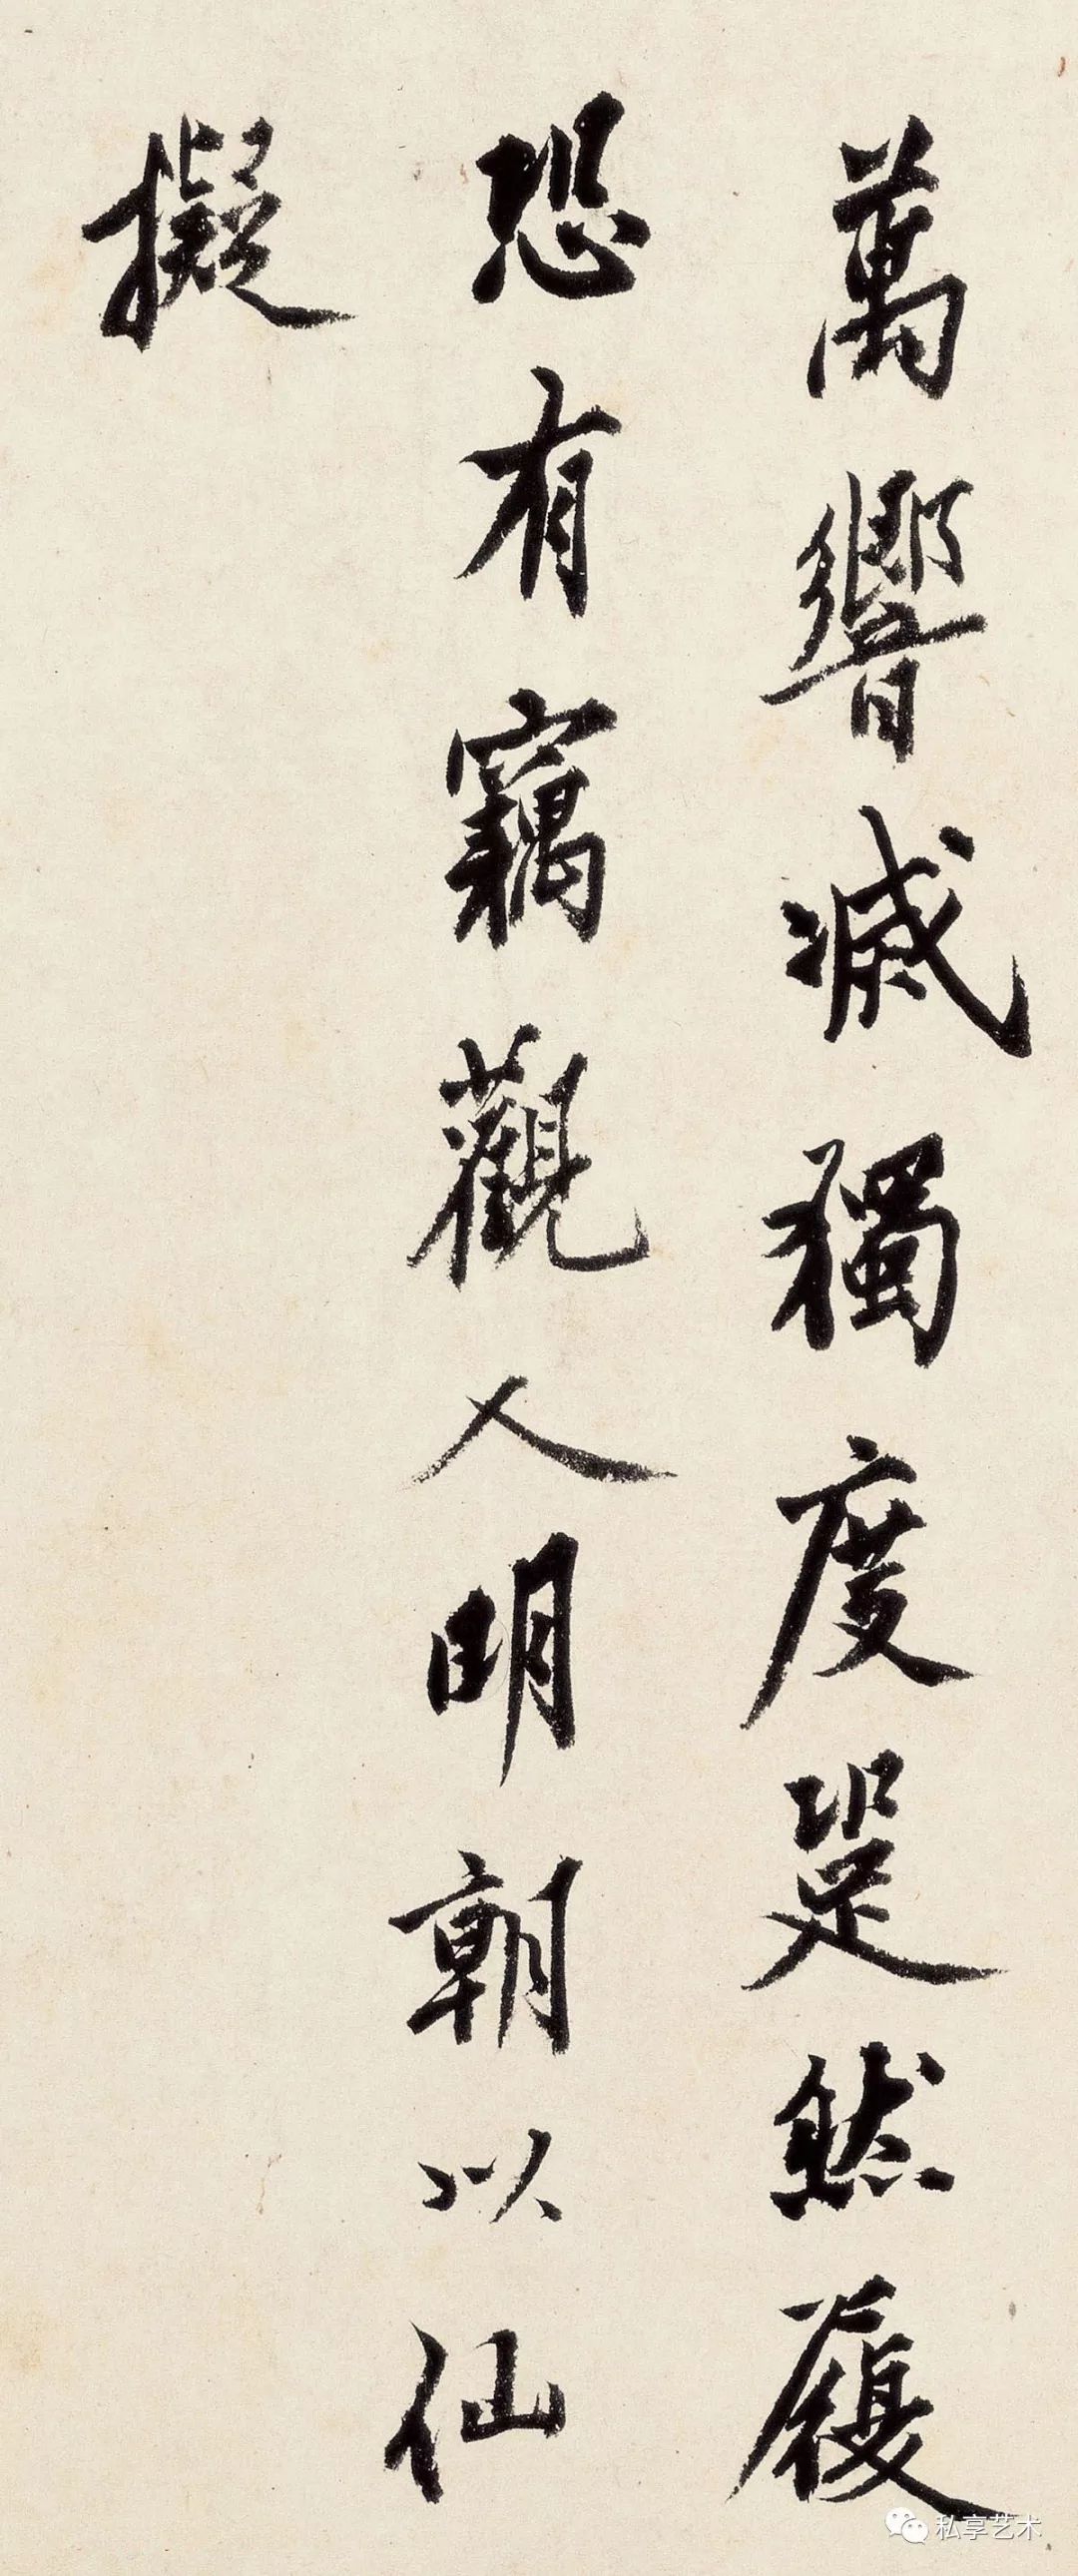 萬響滅獨度跫然履
恐有竊觀人明朝以仙
擬
私享艺术